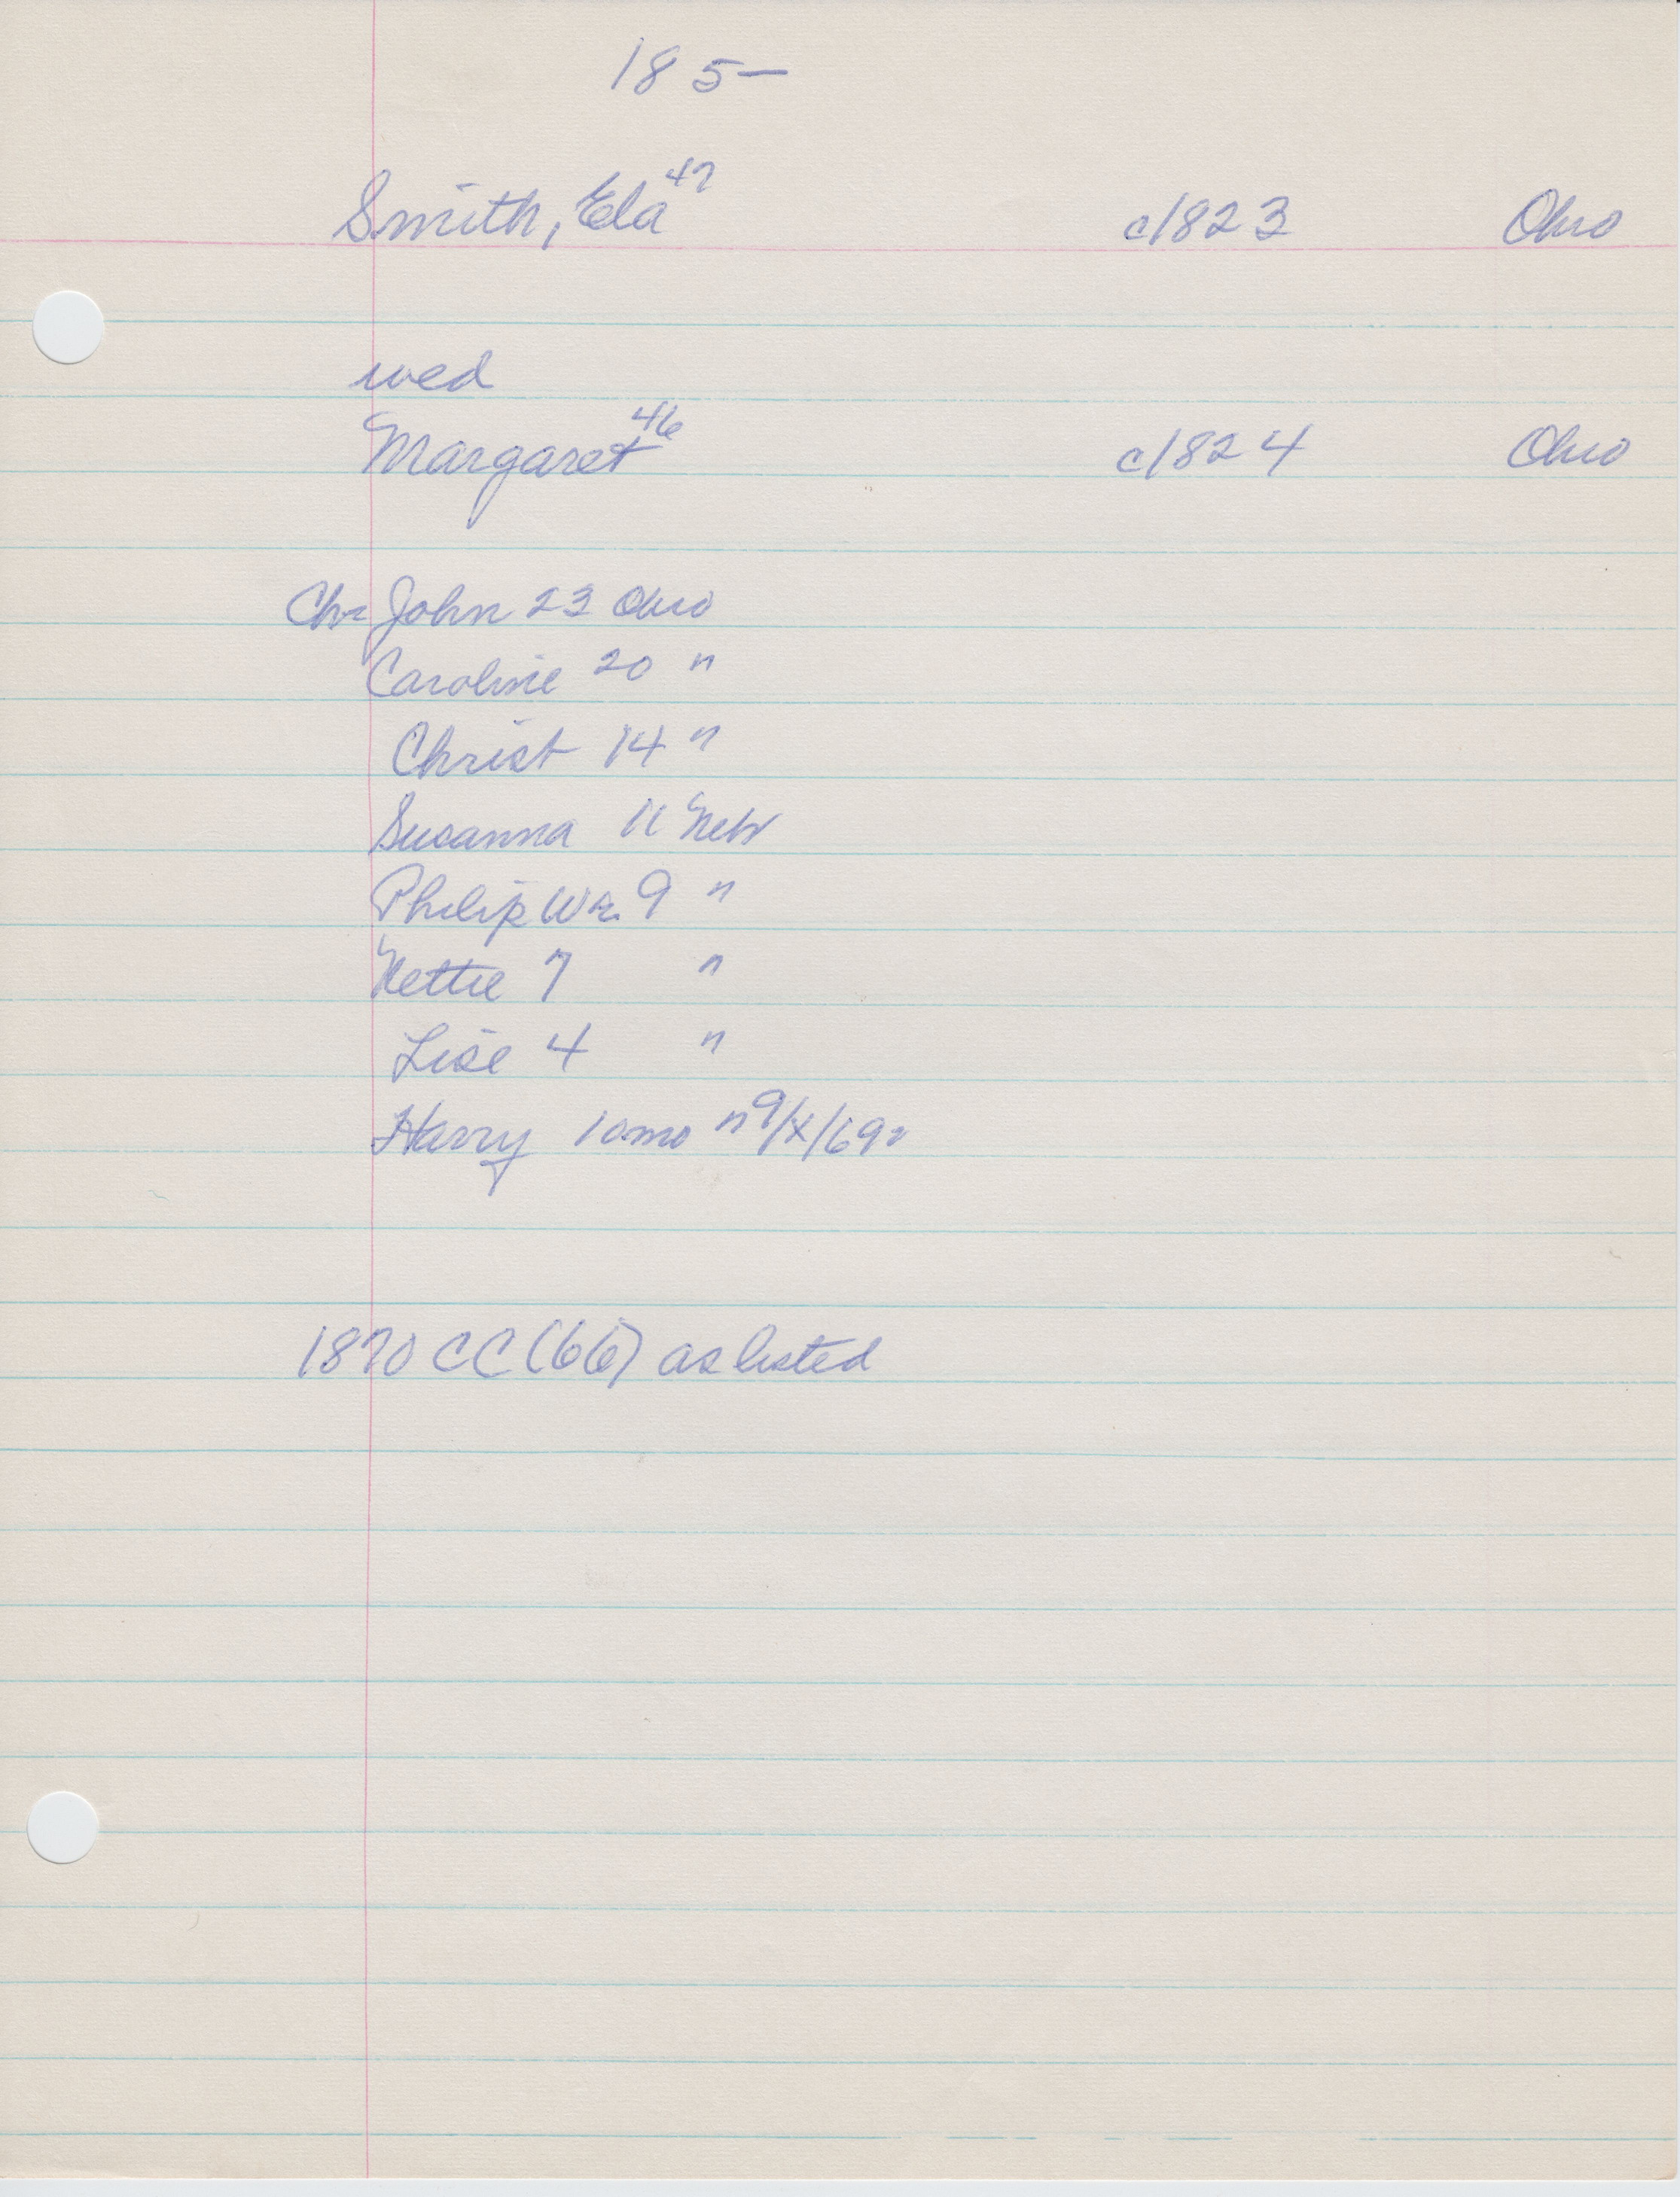 185-
Smith, Ela 47 c1823 Ohio
wed
Margaret 46 c1824 Ohio
Ch- John 23 Ohio
Caroline 20 "
Christ 14 "
Susanna 11 Neb
Philip Wm. 9 "
Nettie 7 "
Lise 4 "
Harry 10mo " 9/x/69
1870 CC (66) as listed